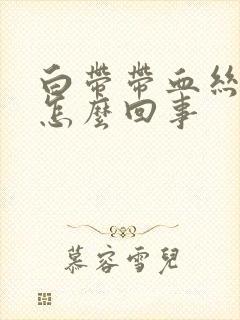 白帶帶血絲
怎麼回事
慕容雪兒